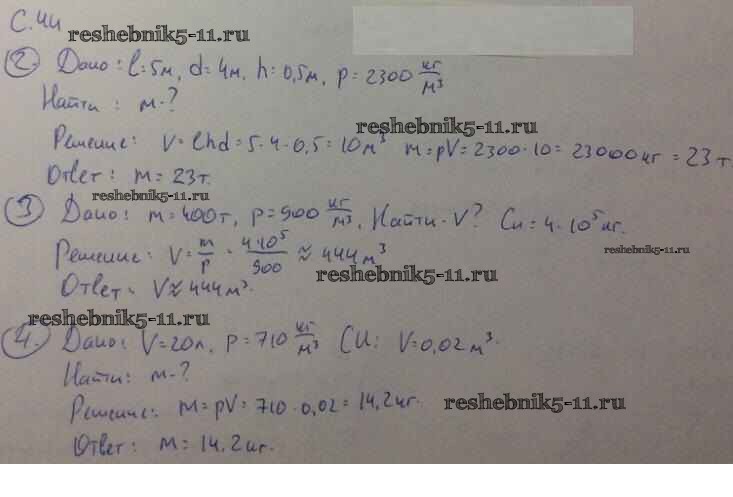 С.44
reshebnik5-11.ru
2. Дано: l=5м, d=4м, h=0,5м, ρ=2300 кг/м³
Найти: m-?
reshebnik5-11.ru
Решение: V=lhd=5·4·0,5=10м³ m=ρV=2300·10=23000кг=23т
Ответ: m=23т.
reshebnik5-11.ru
3 Дано: m=400т, ρ=900 кг/м³, Найти-V? Си=4·10⁵кг.
reshebnik5-11.ru
Решение: V=m/ρ=4·10⁵/900≈444м³
reshebnik5-11.ru
Ответ: V≈444м³.
reshebnik5-11.ru
4. Дано: V=20л, ρ=710 кг/м³ СИ: V=0,02м³.
Найти: m-?
Решение: m=ρV=710·0,02=14,2кг.
reshebnik5-11.ru
Ответ: m=14,2кг.